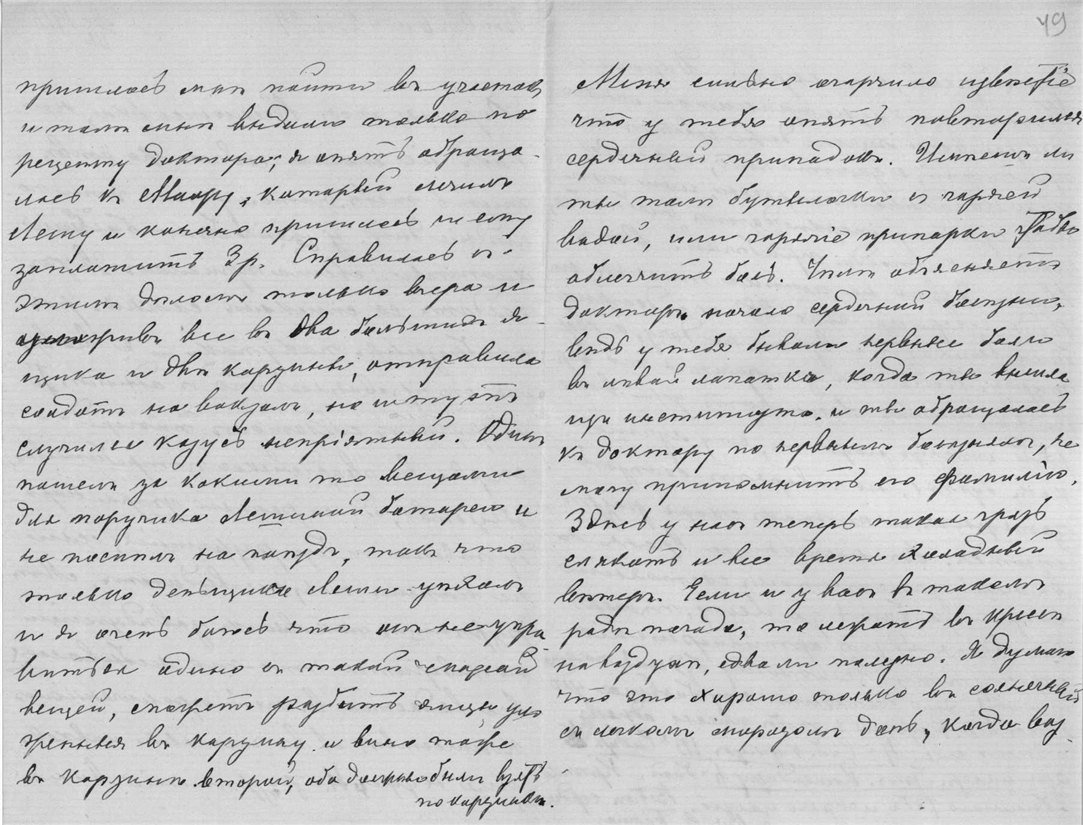 пришлось мнѣ пойти въ участокъ
и тамъ мнѣ выдали только по
рецепту доктора; я опять обраща-
лась къ который лечилъ
Лешу и конечно пришлось и ему
заплатить 3 р. Справилась съ
этимъ дѣломъ только вчера и
уложивъ все въ два большихъ я-
щика и двѣ корзины, отправила
солдатъ на вокзалъ, но и тутъ
случился казусъ непріятный. Одинъ
пошелъ за какими то вещами
для поручика Лешиной батареи и
не поспѣлъ на поѣздъ, такъ что
только деньщикъ Леши уѣхалъ
и я очень боюсь что онъ не упра
вится одинъ съ такой массой
вещей, сможетъ разбить яйца, уло
женныя въ корзину и вино тоже
въ корзинѣ второй, оба должны были взять
по корзинѣ.
49
Меня сильно огорчило извѣстіе
что у тебя опять повторился
сердечный припадокъ. Имѣешь ли
ты тамъ бутылочки съ горячей
водой, или горячіе припарки чтобы
облегчить боль. Чѣмъ объясняетъ
докторъ начало сердечной болѣзни,
вѣдь у тебя бывали нервные боли
въ лѣвой лопаткѣ, когда ты вышла
изъ института и ты обращалась
къ доктору по нервнымъ болѣзнямъ, не
могу припомнить его фамилію.
Здѣсь у насъ теперь такая грязь
слякоть и все время холодный
вѣтеръ. Если и у васъ въ такомъ
родѣ погода, то лежать въ креслѣ
на воздухѣ, едва ли полезно. Я думаю
что это хорошо только въ солнечный
съ легкимъ морозомъ день, когда воз